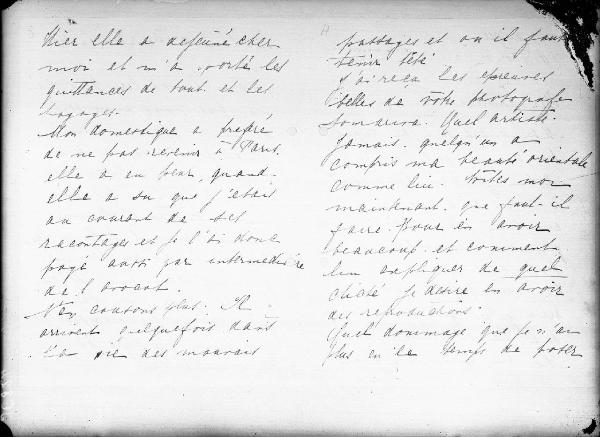 Hier elle a dejeuné chez
moi et m'a porté les
quittances de tout et les
bagages.
Mon domestique a preferé
de ne pas revenir à Paris.
elle a eu peur, quand
elle a su que j'etais
au courant de ses
racontages et je l'ai donc
payé aussi par intermediaire
de l'avocat.
N'en causons plus. Il
arrivent quelquefois dans
la vie des mauvais
passages et on il faut
tenir tête.
J'ai reçu les epreuves
belles de votre photografe
Quel artiste.
Jamais quelqu'un a
compris ma beauté orientale
comme lui. Dites moi
maintenant, que faut-il
faire pour en avoir
beaucoup et comment
lui expliquer de quel
cliché je desire en avoir
des reproductions.
Quel dommage que je n'ai
plus eu le temps de poser